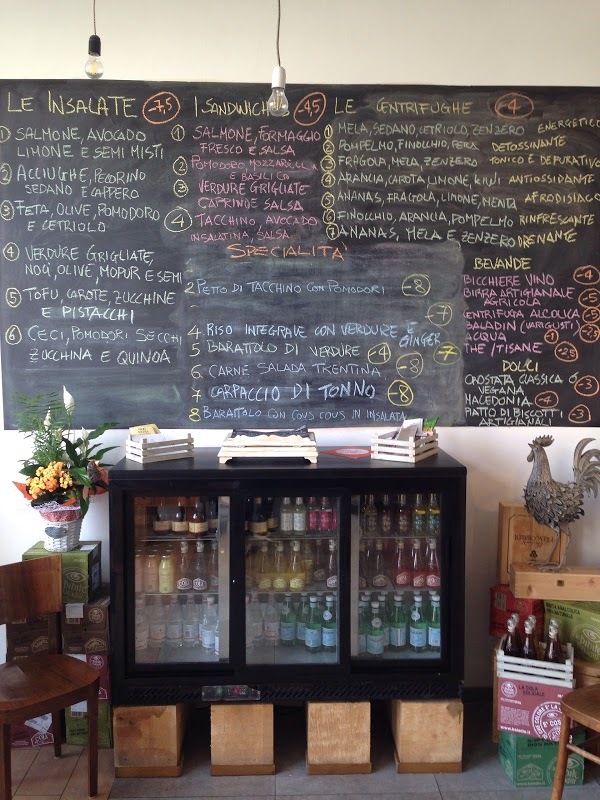 LE INSALATE -7,5
1 SALMONE, AVOCADO
LIMONE E SEMI MISTI
2 ACCIUGHE, PECORINO
SEDANO E CAPPERO
3 FETA, OLIVE, POMODORO
E CETRIOLO
4 VERDURE GRIGLIATE,
NOCI, OLIVE, MOPUR E SEMI
5 TOFU, CAROTE, ZUCCHINE
E PISTACCHI
6 CECI, POMODORI SECCHI
ZUCCHINA E QUINOA
I SANDWICHES -4,5
1 SALMONE, FORMAGGIO
FRESCO E SALSA
2 POMODORO MOZZARELLA
E BASILICO
3 VERDURE GRIGLIATE
CAPRINO E SALSA
4 TACCHINO, AVOCADO
INSALATINA, SALSA
SPECIALITA'
2 PETTO DI TACCHINO CON POMODORI -8
4 RISO INTEGRALE CON VERDURE E GINGER -8
5 BARATTOLO DI VERDURE -4 -7
6 CARNE SALADA TRENTINA -8
7 CARPACCIO DI TONNO -8
8 BARATTOLO CON COUS COUS IN INSALATA
LE CENTRIFUGHE -4
1 MELA, SEDANO, CETRIOLO, ZENZERO ENERGETICO
2 POMPELMO, FINOCCHIO, PERA DETOSSINANTE
3 FRAGOLA, MELA, ZENZERO TONICO E DEPURATIVO
4 ARANCIA, CAROTA, LIMONE, KIWI ANTIOSSIDANTE
5 ANANAS, FRAGOLA, LIMONE, MENTA AFRODISIACO
6 FINOCCHIO, ARANCIA, POMPELMO RINFRESCANTE
7 ANANAS, MELA E ZENZERO DRENANTE
BEVANDE
BICCHIERE VINO -4
BIRRA ARTIGIANALE -5
AGRICOLA
CENTRIFUGA ALCOLICA -5
BALADIN (VARI GUSTI) -2,5
ACQUA -1
THE /TISANE -2,5
DOLCI
CROSTATA CLASSICA O -3
VEGANA
MACEDONIA -4
PIATTO DI BISCOTTI -3
ARTIGIANALI